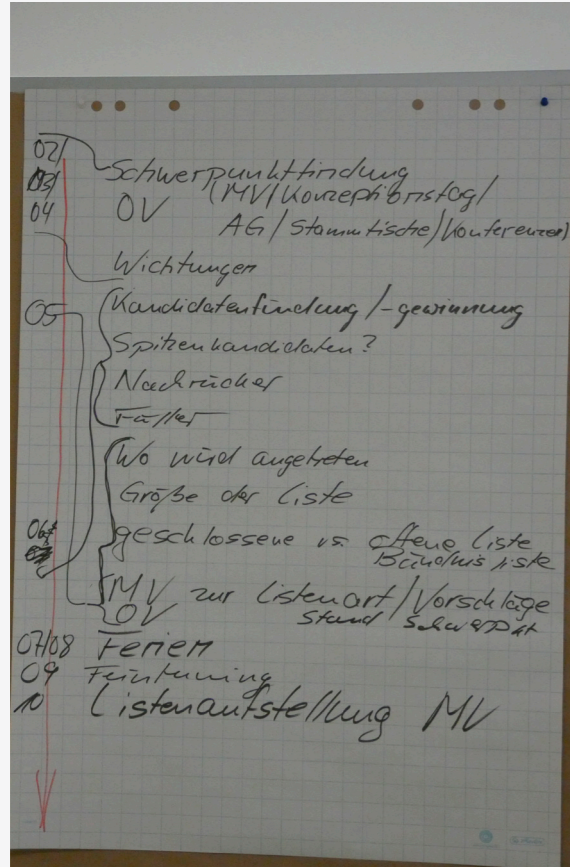 02/
03/ Schwerpunktfindung
04 OV (MV/Konzeptionstag/
AG/Stammtische/Konferenzen)
Wichtungen
05 Kandidatenfindung/-gewinnung
Spitzenkandidaten?
Nachrücker
Füller
Wo wird angetreten
Größe der Liste
06 geschlossene vs. offene Liste
Bündnisliste
MV zur Listenart/Vorschläge
OV Stand Schwerpkt
07/08 Ferien
09 Feintuning
10 Listenaufstellung MV